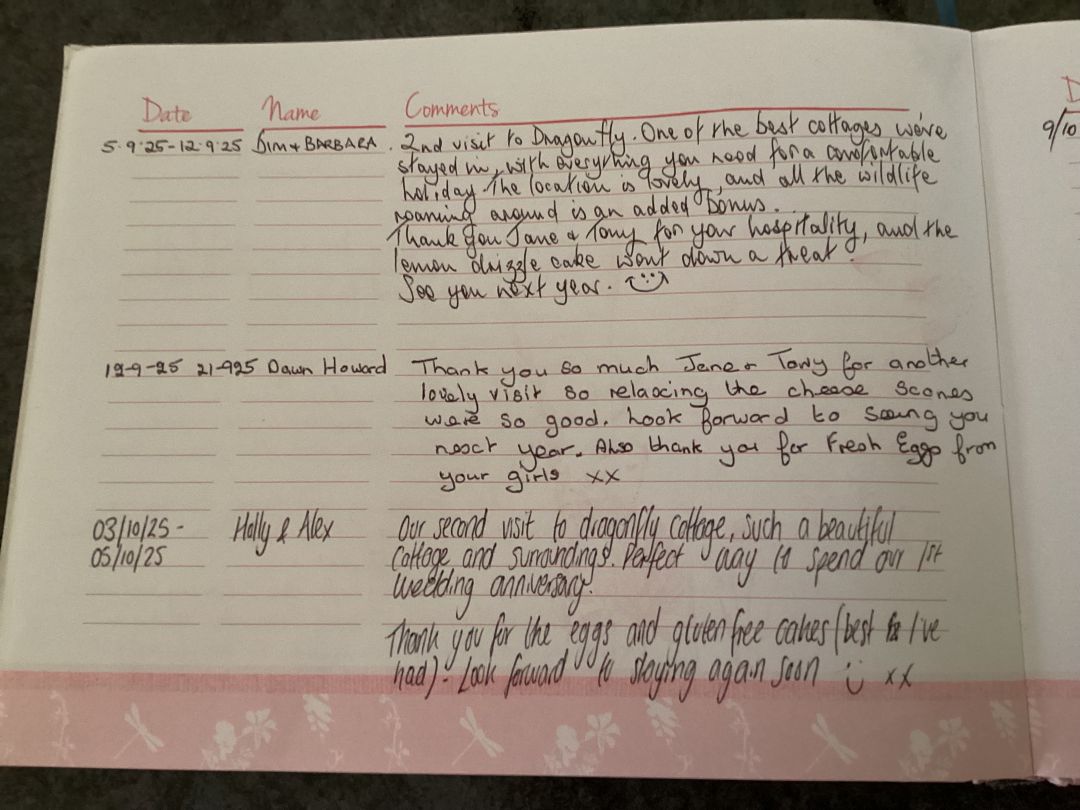 Date Name Comments
5.9.25-12.9.25 JIM & BARBARA. 2nd visit to Dragonfly. One of the best cottages we've
stayed in, with everything you need for a comfortable
holiday. The location is lovely, and all the wildlife
roaming around is an added bonus.
Thank you Jane & Tony for your hospitality, and the
lemon drizzle cake went down a treat.
See you next year.
12-9-25 21-925 Dawn Howard Thank you so much Jane & Tony for another
lovely visit so relaxing the cheese scones
were so good. Look forward to seeing you
next year. Also thank you for Fresh Eggs from
your girls xx
03/10/25 - Holly & Alex Our second visit to dragonfly cottage, such a beautiful
05/10/25 cottage and surroundings. Perfect way to spend our 1st
wedding anniversary.
Thank you for the eggs and gluten free cakes (best I've
had)! Look forward to staying again soon :) xx
9/10